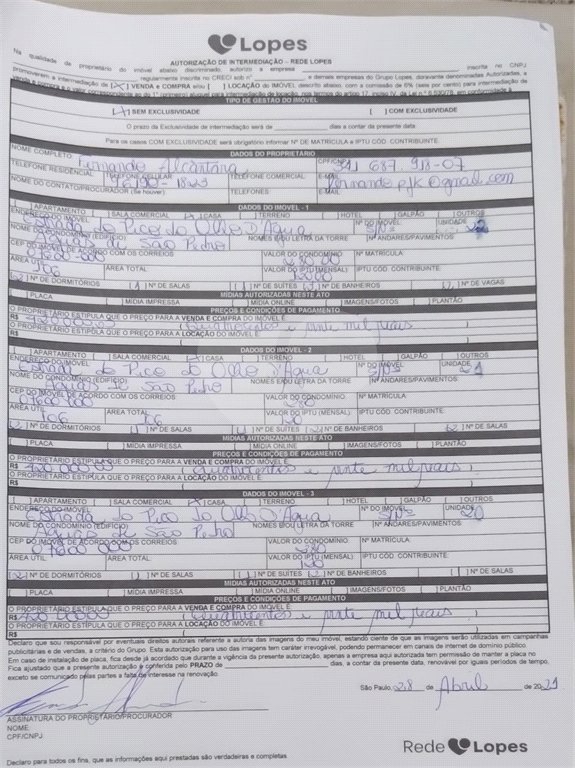 Lopes
AUTORIZAÇÃO DE INTERMEDIAÇÃO – REDE LOPES
Na qualidade de proprietário do imóvel abaixo discriminado, autorizo a empresa inscrita no CNPJ
regularmente inscrita no CRECI sob nº e demais empresas do Grupo Lopes, doravante denominadas Autorizadas, a
promoverem a intermediação de [X] VENDA E COMPRA e/ou [ ] LOCAÇÃO do IMÓVEL descrito abaixo, com a comissão de 6% (seis por cento) para intermediação de
TIPO DE GESTÃO DO IMÓVEL
[X] SEM EXCLUSIVIDADE [ ] COM EXCLUSIVIDADE
O prazo da Exclusividade de intermediação será de dias a contar da presente data.
Para os casos COM EXCLUSIVIDADE será obrigatório informar Nº DE MATRÍCULA e IPTU CÓD. CONTRIBUINTE.
DADOS DO PROPRIETÁRIO
NOME COMPLETO Fernando Alcântara CPF/CNPJ
TELEFONE RESIDENCIAL TELEFONE CELULAR TELEFONE COMERCIAL E-MAIL
NOME DO CONTATO/PROCURADOR (Se houver) TELEFONES E-MAIL
DADOS DO IMÓVEL - 1
[ ] APARTAMENTO [ ] SALA COMERCIAL [X] CASA [ ] TERRENO [ ] HOTEL [ ] GALPÃO [ ] OUTROS
ENDEREÇO DO IMÓVEL Estrada do Pico do Olho D'Agua Nº DO IMÓVEL S/Nº UNIDADE
NOME DO CONDOMÍNIO (EDIFÍCIO) Águas de São Pedro NOME E/OU LETRA DA TORRE Nº ANDARES/PAVIMENTOS
CEP DO IMÓVEL DE ACORDO COM OS CORREIOS 07600-000 VALOR DO CONDOMÍNIO 280 Nº MATRÍCULA
ÁREA ÚTIL 106 ÁREA TOTAL VALOR DO IPTU (MENSAL) IPTU CÓD. CONTRIBUINTE
Nº DE DORMITÓRIOS Nº DE SALAS Nº DE SUÍTES Nº DE BANHEIROS Nº DE VAGAS
MÍDIAS AUTORIZADAS NESTE ATO
[ ] PLACA [ ] MÍDIA IMPRESSA [ ] MÍDIA ONLINE [ ] IMAGENS/FOTOS [ ] PLANTÃO
PREÇOS E CONDIÇÕES DE PAGAMENTO
O PROPRIETÁRIO ESTIPULA QUE O PREÇO PARA A VENDA E COMPRA DO IMÓVEL É:
R$ 420.000,00 (Quatrocentos e vinte mil reais)
O PROPRIETÁRIO ESTIPULA QUE O PREÇO PARA A LOCAÇÃO DO IMÓVEL É:
R$
DADOS DO IMÓVEL - 2
[ ] APARTAMENTO [ ] SALA COMERCIAL [X] CASA [ ] TERRENO [ ] HOTEL [ ] GALPÃO [ ] OUTROS
ENDEREÇO DO IMÓVEL Estrada do Pico do Olho D'Agua Nº DO IMÓVEL S/Nº UNIDADE
NOME DO CONDOMÍNIO (EDIFÍCIO) Águas de São Pedro NOME E/OU LETRA DA TORRE Nº ANDARES/PAVIMENTOS
CEP DO IMÓVEL DE ACORDO COM OS CORREIOS 07600-000 VALOR DO CONDOMÍNIO 280 Nº MATRÍCULA
ÁREA ÚTIL 106 ÁREA TOTAL 106 VALOR DO IPTU (MENSAL) 120 IPTU CÓD. CONTRIBUINTE
Nº DE DORMITÓRIOS Nº DE SALAS Nº DE SUÍTES Nº DE BANHEIROS Nº DE SALAS
MÍDIAS AUTORIZADAS NESTE ATO
[ ] PLACA [ ] MÍDIA IMPRESSA [ ] MÍDIA ONLINE [ ] IMAGENS/FOTOS [ ] PLANTÃO
PREÇOS E CONDIÇÕES DE PAGAMENTO
O PROPRIETÁRIO ESTIPULA QUE O PREÇO PARA A VENDA E COMPRA DO IMÓVEL É:
R$ 420.000,00 (Quatrocentos e vinte mil reais)
O PROPRIETÁRIO ESTIPULA QUE O PREÇO PARA A LOCAÇÃO DO IMÓVEL É:
R$
DADOS DO IMÓVEL - 3
[ ] APARTAMENTO [ ] SALA COMERCIAL [X] CASA [ ] TERRENO [ ] HOTEL [ ] GALPÃO [ ] OUTROS
ENDEREÇO DO IMÓVEL Estrada do Pico do Olho D'Agua Nº DO IMÓVEL S/Nº UNIDADE 20
NOME DO CONDOMÍNIO (EDIFÍCIO) Águas de São Pedro NOME E/OU LETRA DA TORRE Nº ANDARES/PAVIMENTOS
CEP DO IMÓVEL DE ACORDO COM OS CORREIOS 07600 000 VALOR DO CONDOMÍNIO 280 Nº MATRÍCULA
ÁREA ÚTIL ÁREA TOTAL VALOR DO IPTU (MENSAL) 120 IPTU CÓD. CONTRIBUINTE
Nº DE DORMITÓRIOS Nº DE SALAS Nº DE SUÍTES Nº DE BANHEIROS Nº DE SALAS
MÍDIAS AUTORIZADAS NESTE ATO
[ ] PLACA [ ] MÍDIA IMPRESSA [ ] MÍDIA ONLINE [ ] IMAGENS/FOTOS [ ] PLANTÃO
PREÇOS E CONDIÇÕES DE PAGAMENTO
O PROPRIETÁRIO ESTIPULA QUE O PREÇO PARA A VENDA E COMPRA DO IMÓVEL É:
R$ 420.000,00 (Quatrocentos e vinte mil reais)
O PROPRIETÁRIO ESTIPULA QUE O PREÇO PARA A LOCAÇÃO DO IMÓVEL É:
R$
Declaro que sou responsável por eventuais direitos autorais referente a autoria das imagens do meu imóvel, estando ciente de que as imagens serão utilizadas em campanhas
publicitárias e de vendas, a critério do Grupo. Esta autorização para uso das imagens tem caráter irrevogável, podendo permanecer em canais de internet de domínio público.
Em caso de instalação de placa, fica desde já acordado que durante a vigência da presente autorização, apenas a empresa aqui autorizada tem permissão de manter a placa no
Fica ajustado que a presente autorização é conferida pelo PRAZO de dias, a contar da presente data, renovável por iguais períodos de tempo,
exceto se comunicado pelas partes a falta de interesse na renovação.
São Paulo, 28 de Abril de 2021
ASSINATURA DO PROPRIETÁRIO/PROCURADOR
NOME:
CPF/CNPJ
Rede Lopes
Declaro para todos os fins, que as informações aqui prestadas são verdadeiras e completas